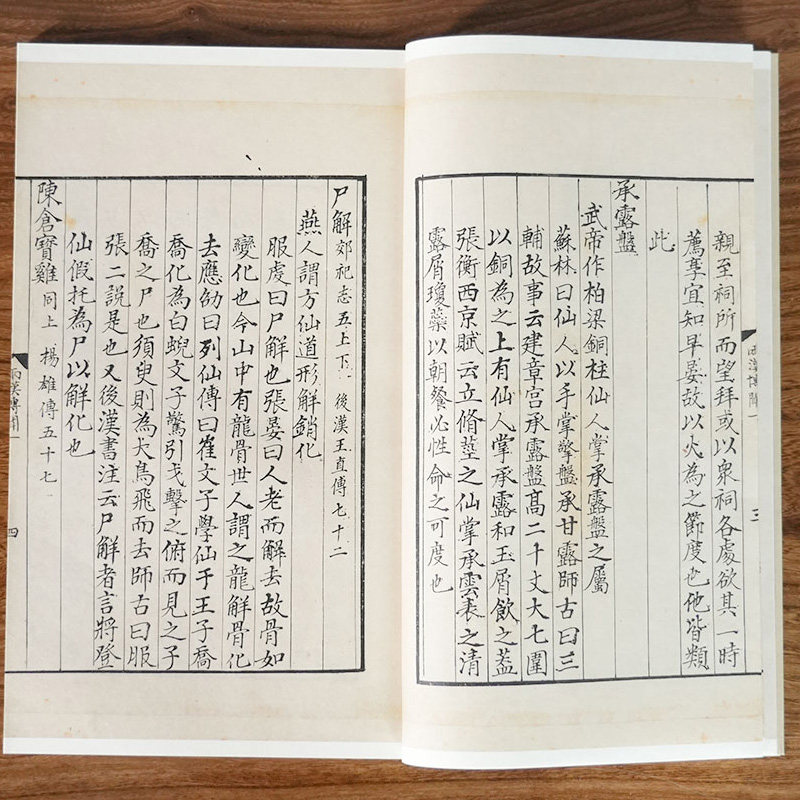 親至祠所而望拜或以衆祠各處欲其一時
薦享宜知早晏故以火為之節度也他皆類
此
承露盤
武帝作柏梁銅柱仙人掌承露盤之屬
蘇林曰仙人以手掌擎盤承甘露師古曰三
輔故事云建章宫承露盤髙二十丈大七圍
以銅為之上有仙人掌承露和玉屑飲之蓋
張衡西京賦云立脩莖之仙掌承雲表之清
露屑瓊蘂以朝餐必性命之可度也
三
尸解郊祀志五上下 後漢王真傳七十二
燕人謂方仙道形解銷化
服虔曰尸解也張晏曰人老而解去故骨如
變化也今山中有龍骨世人謂之龍解骨化
去應劭曰列仙傳曰崔文子學仙于王子喬
喬化為白蜺文子驚引戈擊之俯而見之子
喬之尸也須臾則為大鳥飛而去師古曰服
張二説是也又後漢書注云尸解者言將登
仙假托為尸以解化也
陳倉寳雞同上 揚雄傳五十七
兩漢博聞一
四